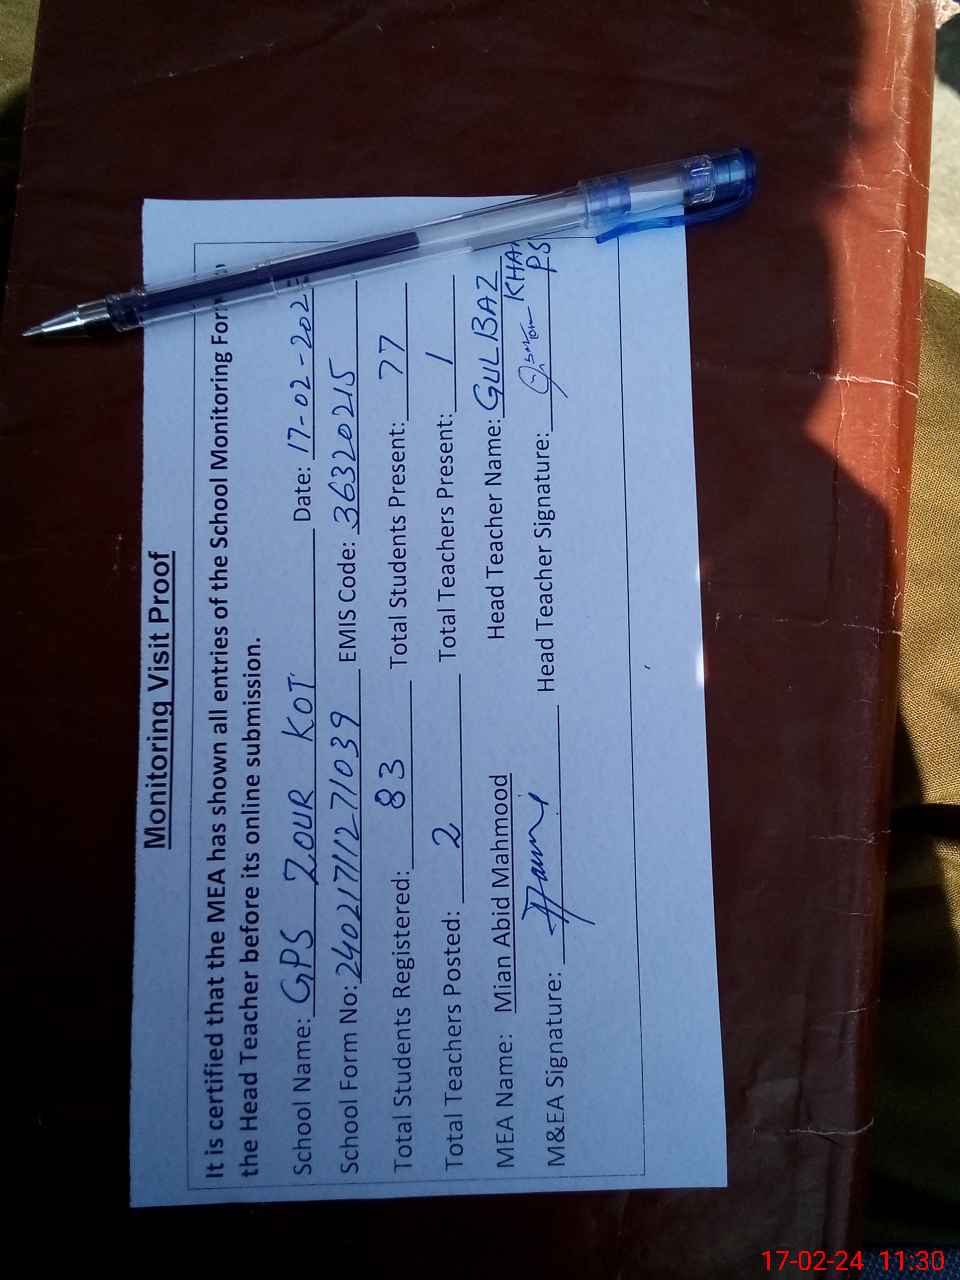 Monitoring Visit Proof
It is certified that the MEA has shown all entries of the School Monitoring Form
the Head Teacher before its online submission.
School Name: GPS ZOUR KOT Date: 17-02-202
School Form No: 240217111271039 EMIS Code: 36320215
Total Students Registered: 83 Total Students Present: 77
Total Teachers Posted: 2 Total Teachers Present: 1
MEA Name: Mian Abid Mahmood Head Teacher Name: GULBAZ KHAN
M&EA Signature: Head Teacher Signature: PS
17-02-24 11:30